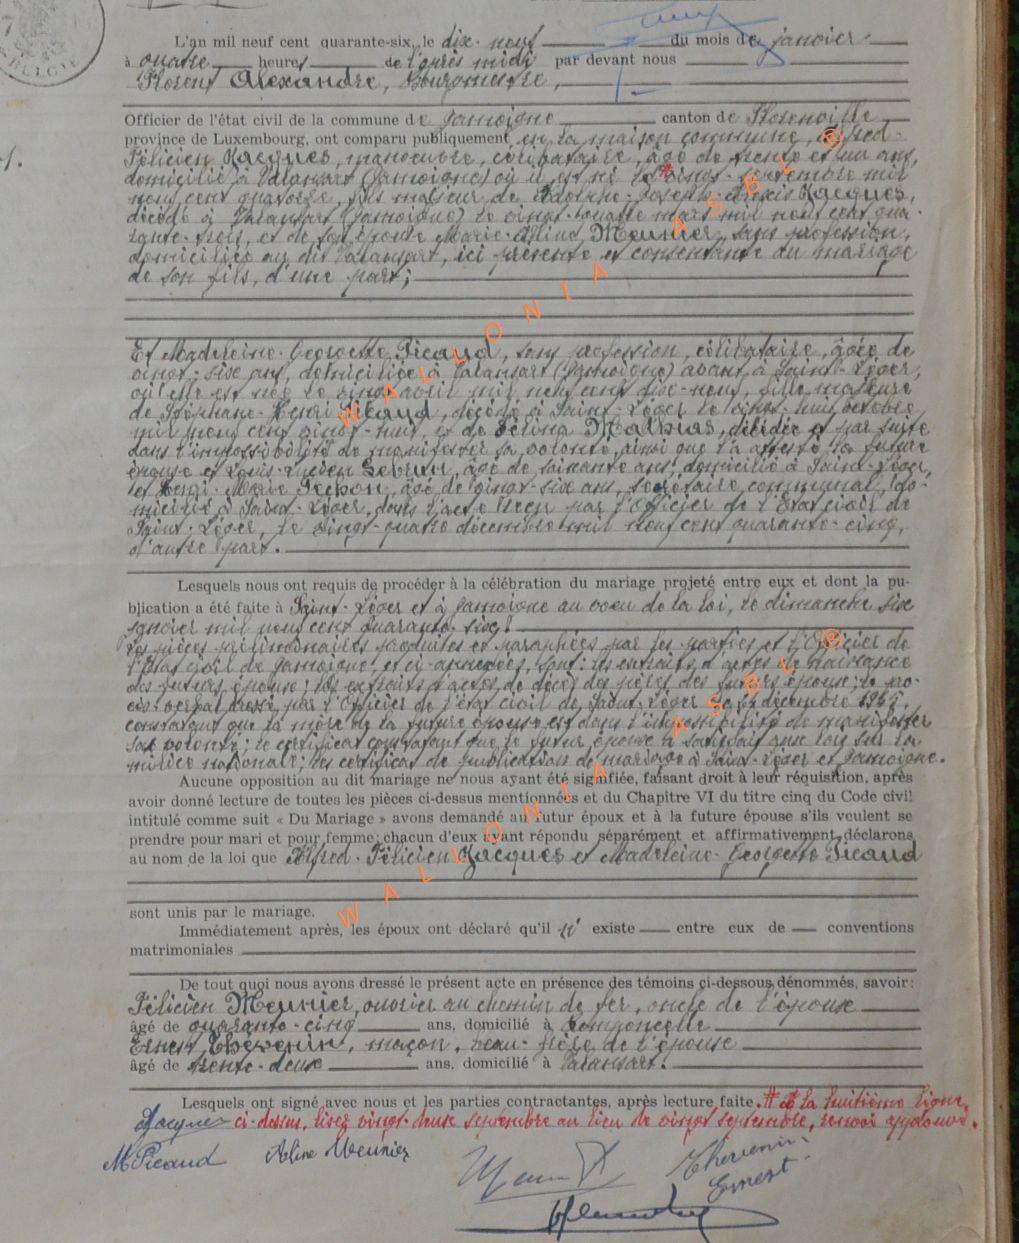 BELGIË
L'an mil neuf cent quarante-six, le dix-neuf du mois de janvier
à quatre heures de l'après midi par devant nous
Florent Alexandre, Bourgmestre,
Officier de l'état civil de la commune de Jamoigne canton de Florenville
province de Luxembourg, ont comparu publiquement en la maison commune, Alfred-
Félicien Jacques, manoeuvre, célibataire, âgé de trente et un ans,
domicilié à Valansart (Jamoigne) où il est né le # vingt septembre mil
neuf cent quatorze, fils majeur de Joseph Jacques,
décédé à Valansart (Jamoigne) le vingt-quatre mars mil neuf cent qua-
rante-trois, et de son épouse Marie-Aline Meunier, sans profession,
domiciliée au dit Valansart, ici présente et consentante au mariage
de son fils, d'une part;
Et Madeleine-Georgette Picaud, sans profession, célibataire, âgée de
vingt-six ans, domiciliée à Valansart (Jamoigne) avant à Saint-Léger,
où elle est née le vingt avril mil neuf cent dix-neuf, fille majeure
de Stéphane-Henri Picaud, décédé à Saint-Léger le vingt-huit octobre
mil neuf cent vingt-huit, et de Mathias, et par suite
dans l'impossibilité de manifester sa volonté, ainsi que l'a attesté la future
épouse et Louis-Lucien Lebrun, âgé de soixante ans, domicilié à Saint-Léger,
et Henri-Marie âgé de vingt-six ans, secrétaire communal, do-
micilié à Saint-Léger, dans l'acte reçu par l'Officier de l'Etat civil de
Saint-Léger, le vingt-quatre décembre mil neuf cent quarante-cinq,
d'autre part.
Lesquels nous ont requis de procéder à la célébration du mariage projeté entre eux et dont la pu-
blication a été faite à Saint-Léger et à Jamoigne au voeu de la loi, le dimanche six
janvier mil neuf cent quarante-six.
Les pièces préliminaires produites et paraphées par les parties et l'Officier de
l'Etat civil de Jamoigne et ci-annexées, sont: les extraits d'actes de naissance
des futurs époux; les extraits d'actes de décès des pères des futurs époux; le pro-
cès verbal dressé par l'Officier de l'état civil de Saint-Léger le décembre 1945,
constatant que la mère de la future épouse est dans l'impossibilité de manifester
sa volonté; le certificat constatant que le futur époux a satisfait aux lois sur la
milice nationale; les certificats de publication de mariage à Saint-Léger et Jamoigne.
Aucune opposition au dit mariage ne nous ayant été signifiée, faisant droit à leur réquisition, après
avoir donné lecture de toutes les pièces ci-dessus mentionnées et du Chapitre VI du titre cinq du Code civil
intitulé comme suit « Du Mariage » avons demandé au futur époux et à la future épouse s'ils veulent se
prendre pour mari et pour femme; chacun d'eux ayant répondu séparément et affirmativement, déclarons
au nom de la loi que Alfred-Félicien Jacques et Madeleine-Georgette Picaud
sont unis par le mariage.
Immédiatement après, les époux ont déclaré qu'il n' existe entre eux de conventions
matrimoniales
De tout quoi nous avons dressé le présent acte en présence des témoins ci-dessous dénommés, savoir:
Félicien Meunier, ouvrier au chemin de fer, oncle de l'époux
âgé de quarante-cinq ans, domicilié à
Ernest Thévenin, maçon, beau-frère de l'épouse
âgé de trente-deux ans, domicilié à Valansart.
Lesquels ont signé avec nous et les parties contractantes, après lecture faite. # à la huitième ligne
ci-dessus, lisez vingt-deux septembre au lieu de vingt septembre, renvoi approuvé.
AJacques
M Picaud Aline Meunier Thevenin
Ernest
WALLONIA ASBL ®
WALLONIA ASBL ®